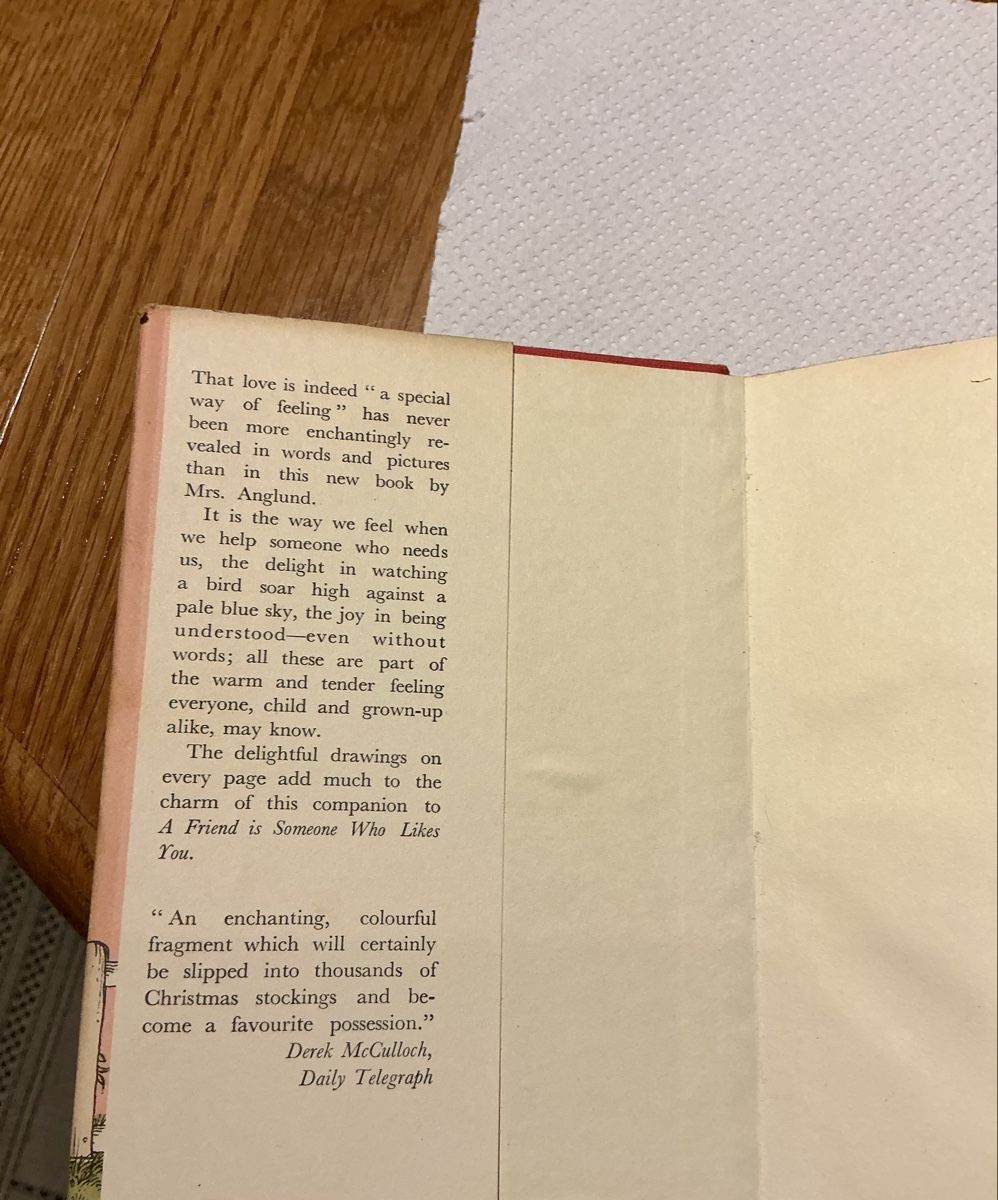 That love is indeed “ a special
way of feeling ” has never
been more enchantingly re-
vealed in words and pictures
than in this new book by
Mrs. Anglund.
It is the way we feel when
we help someone who needs
us, the delight in watching
a bird soar high against a
pale blue sky, the joy in being
understood—even without
words; all these are part of
the warm and tender feeling
everyone, child and grown-up
alike, may know.
The delightful drawings on
every page add much to the
charm of this companion to
A Friend is Someone Who Likes
You.
“ An enchanting, colourful
fragment which will certainly
be slipped into thousands of
Christmas stockings and be-
come a favourite possession.”
Derek McCulloch,
Daily Telegraph